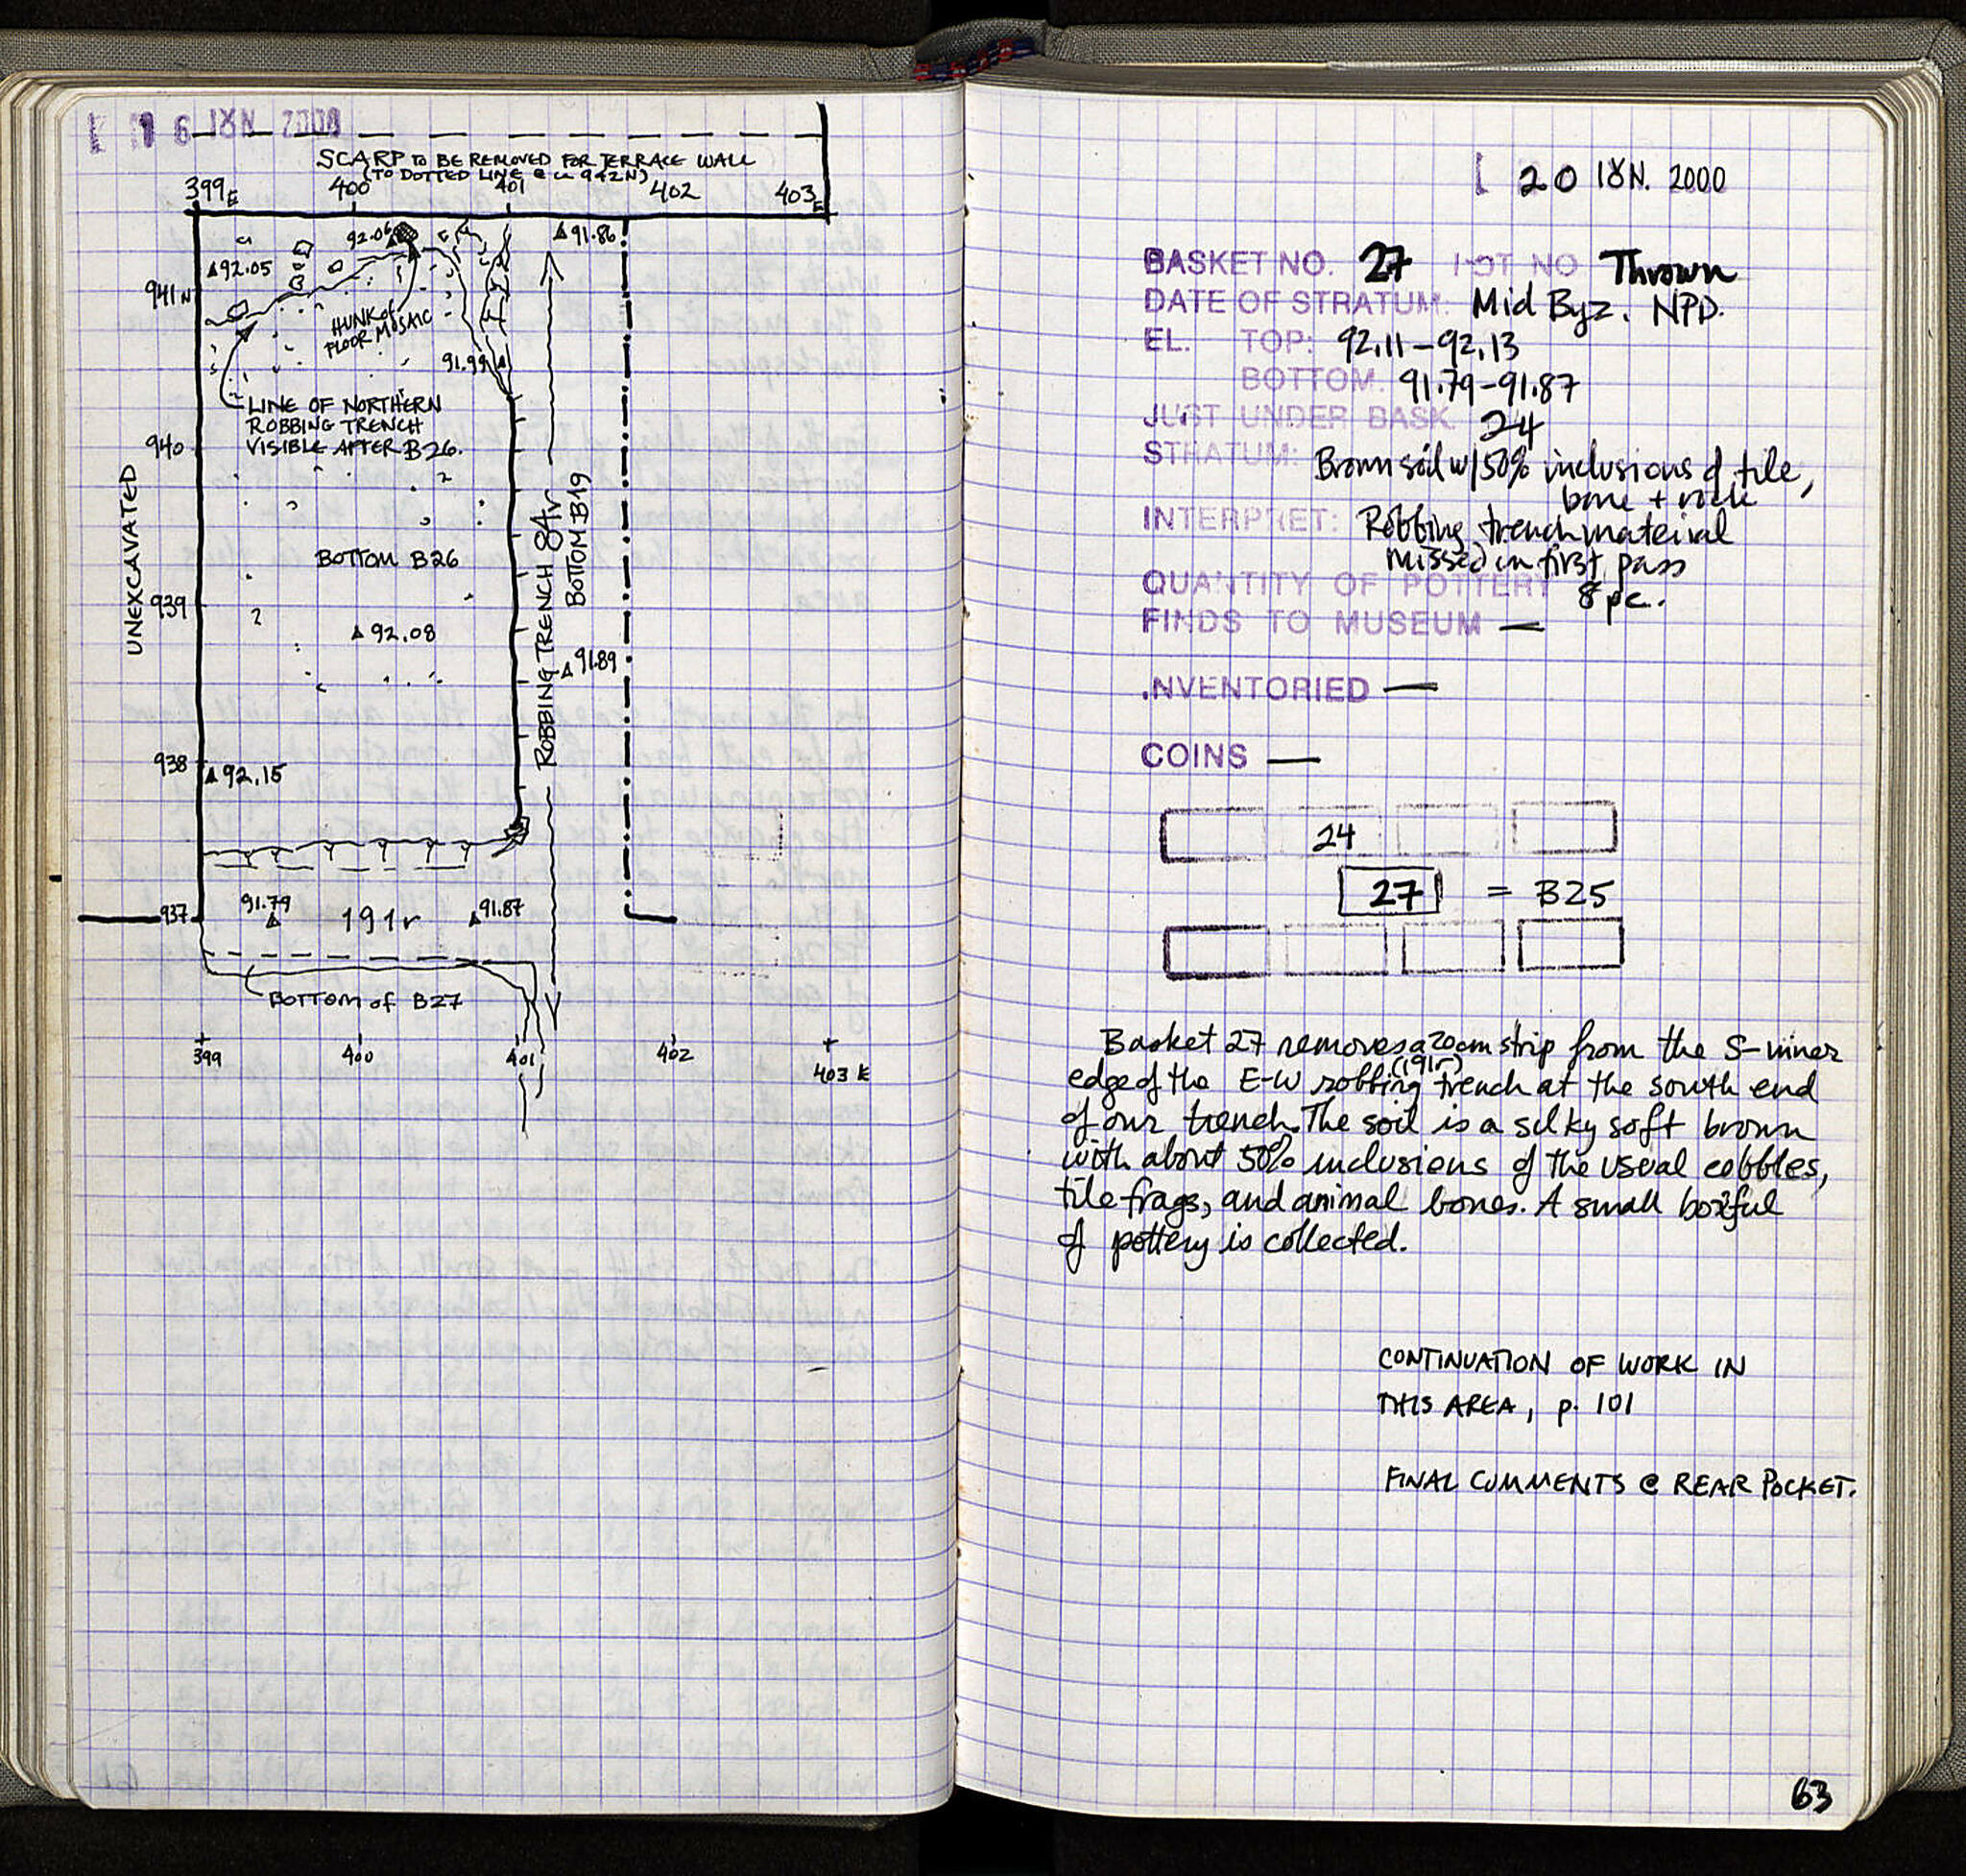 16 IȢN 2000
SCARP TO BE REMOVED FOR TERRACE WALL
(TO DOTTED LINE @ ca 942N)
399E 400 401 402 403E
92.06
91.86
92.05
941N
HUNK of
FLOOR MOSAIC
91.99
LINE OF NORTHERN
ROBBING TRENCH
VISIBLE AFTER B26.
940
UNEXCAVATED
ROBBING TRENCH 84r
BOTTOM B19
BOTTOM B26
939
92.08
91.89
938
92.15
937
91.79
191r
91.87
BOTTOM of B27
399 400 401 402
403 E
20 IȢN. 2000
BASKET NO. 27 LOT NO Thrown
DATE OF STRATUM: Mid Byz. NPD.
EL. TOP: 92.11-92.13
BOTTOM. 91.79-91.87
JUST UNDER BASK 24
STRATUM: Brown soil w/50% inclusions of tile,
bone + rock
INTERPRET: Robbing trench material
missed in first pass
QUANTITY OF POTTERY 8 pc.
FINDS TO MUSEUM —
INVENTORIED —
COINS —
24
27 = B25
Basket 27 removes a 20cm strip from the S-inner
(191r)
edge of the E-W robbing trench at the south end
of our trench. The soil is a silky soft brown
with about 50% inclusions of the usual cobbles,
tile frags, and animal bones. A small boxful
of pottery is collected.
CONTINUATION OF WORK IN
THIS AREA, p. 101
FINAL COMMENTS @ REAR POCKET.
63